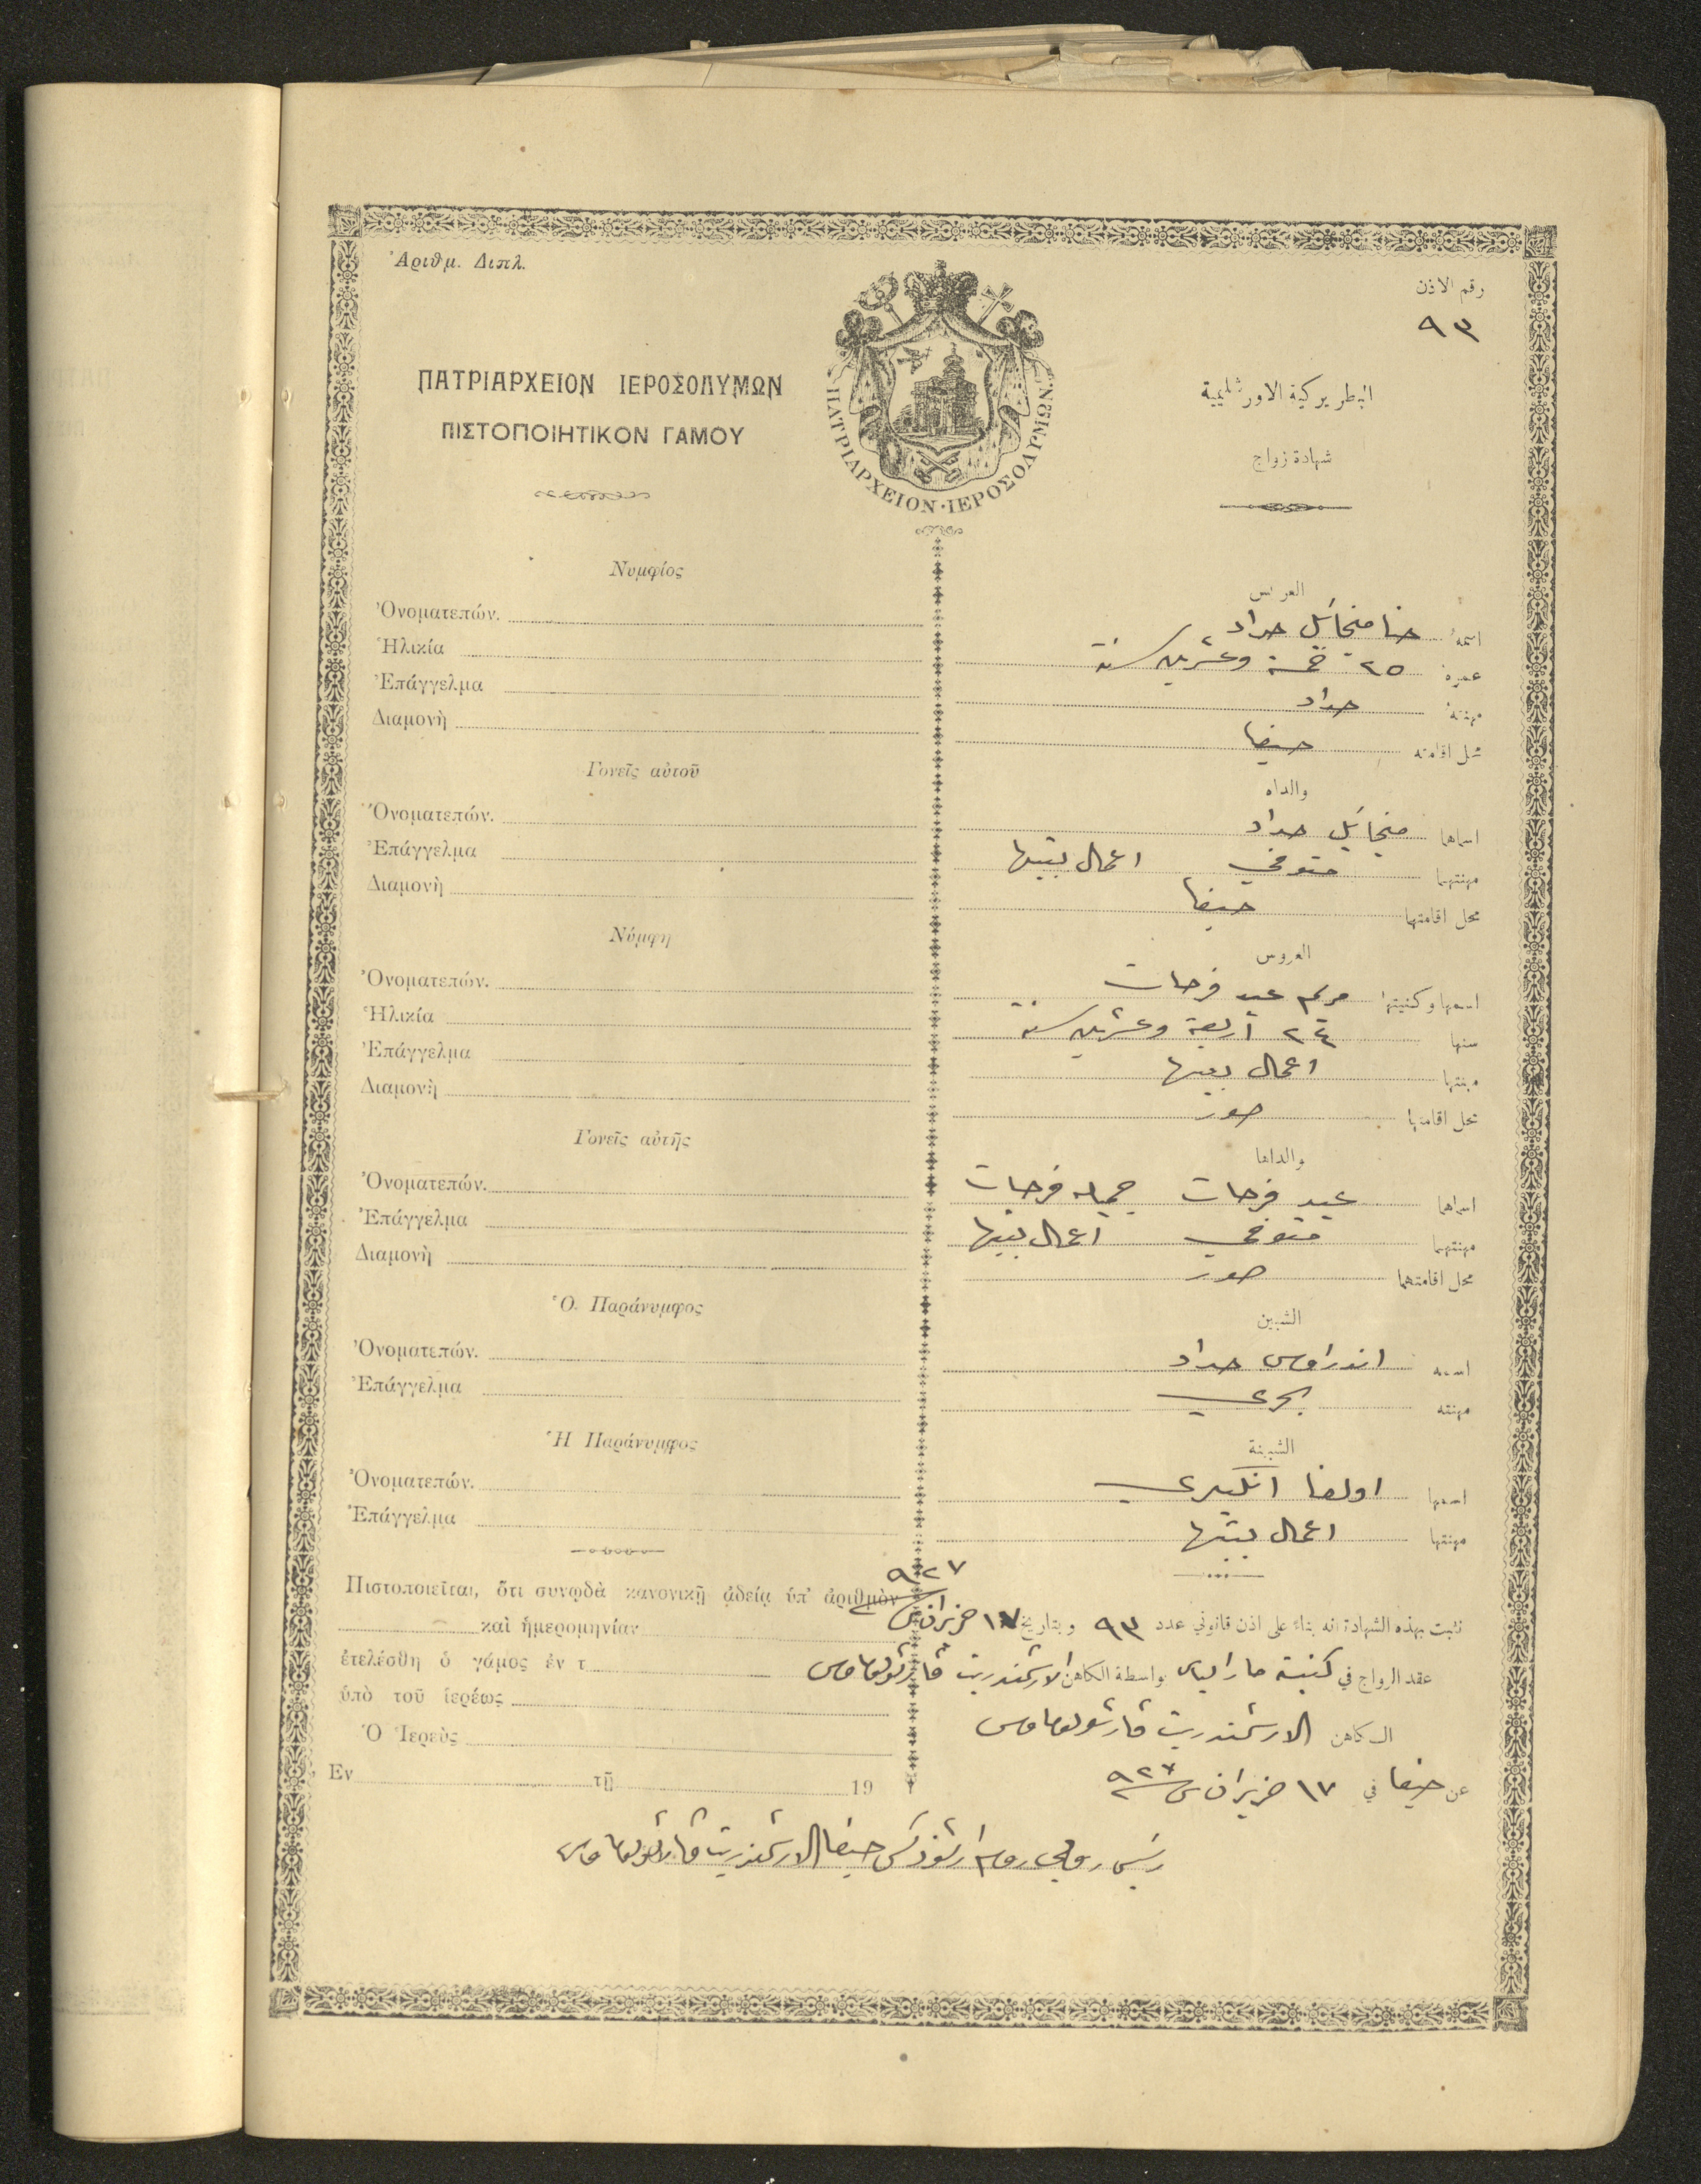 Ἀριθμ. Διπλ.
رقم الاذن
٩٣
ΠΑΤΡΙΑΡΧΕΙΟΝ ΙΕΡΟΣΟΛΥΜΩΝ
ΠΙΣΤΟΠΟΙΗΤΙΚΟΝ ΓΑΜΟΥ
ΠΑΤΡΙΑΡΧΕΙΟΝ·ΙΕΡΟΣΟΛΥΜΩΝ
البطريركية الاورشليمية
شهادة زواج
Νυμφίος
Ὀνοματεπών.
Ἡλικία
Ἐπάγγελμα
Διαμονὴ
Γονεῖς αὐτοῦ
Ὀνοματεπών.
Ἐπάγγελμα
Διαμονὴ
Νύμφη
Ὀνοματεπών.
Ἡλικία
Ἐπάγγελμα
Διαμονὴ
Γονεῖς αὐτῆς
Ὀνοματεπών.
Ἐπάγγελμα
Διαμονὴ
Ὁ. Παράνυμφος
Ὀνοματεπών.
Ἐπάγγελμα
Ἡ Παράνυμφος
Ὀνοματεπών.
Ἐπάγγελμα
Πιστοποιεῖται, ὅτι συνῳδὰ κανονικῇ ἀδείᾳ ὑπ' ἀριθμὸν
καὶ ἡμερομηνίαν
ἐτελέσθη ὁ γάμος ἐν τ
ὑπὸ τοῦ ἱερέως
Ὁ Ἱερεὺς
Ἐν τῇ 19
العريس
اسمه حنا ميخائيل حداد
عمره ٢٥ خمسة وعشرين سنة
مهنته حداد
محل اقامته حيفا
والداه
اسماهما ميخائيل حداد
مهنتهما متوفي اعمال بيتها
محل اقامتهما حيفا
العروس
اسمها وكنيتها مريم عيد فرحات
سنها ٢٤ اربعة وعشرين سنة
مهنتها اعمال بيتها
محل اقامتها صور
والداها
اسماهما عيد فرحات جميله فرحات
مهنتهما متوفي اعمال بيتها
محل اقامتهما صور
الشبين
اسمه اندراوس حداد
مهنته بحري
الشبينة
اسمها اولغا انكليزي
مهنتها اعمال بيتها
نثبت بهذه الشهادة انه بناء على اذن قانوني عدد ٩٣ وبتاريخ ١٧ حزيران س ٩٢٧
عقد الزواج في كنيسة مار الياس بواسطة الكاهن الارشمندريت فارثولوماوس
الكاهن الارشمندريت فارثولوماوس
عن حيفا في ١٧ حزيران س ٩٢٧
رئيس روحي روم ارثوذكس حيفا الارشمندريت فارثولوماوس